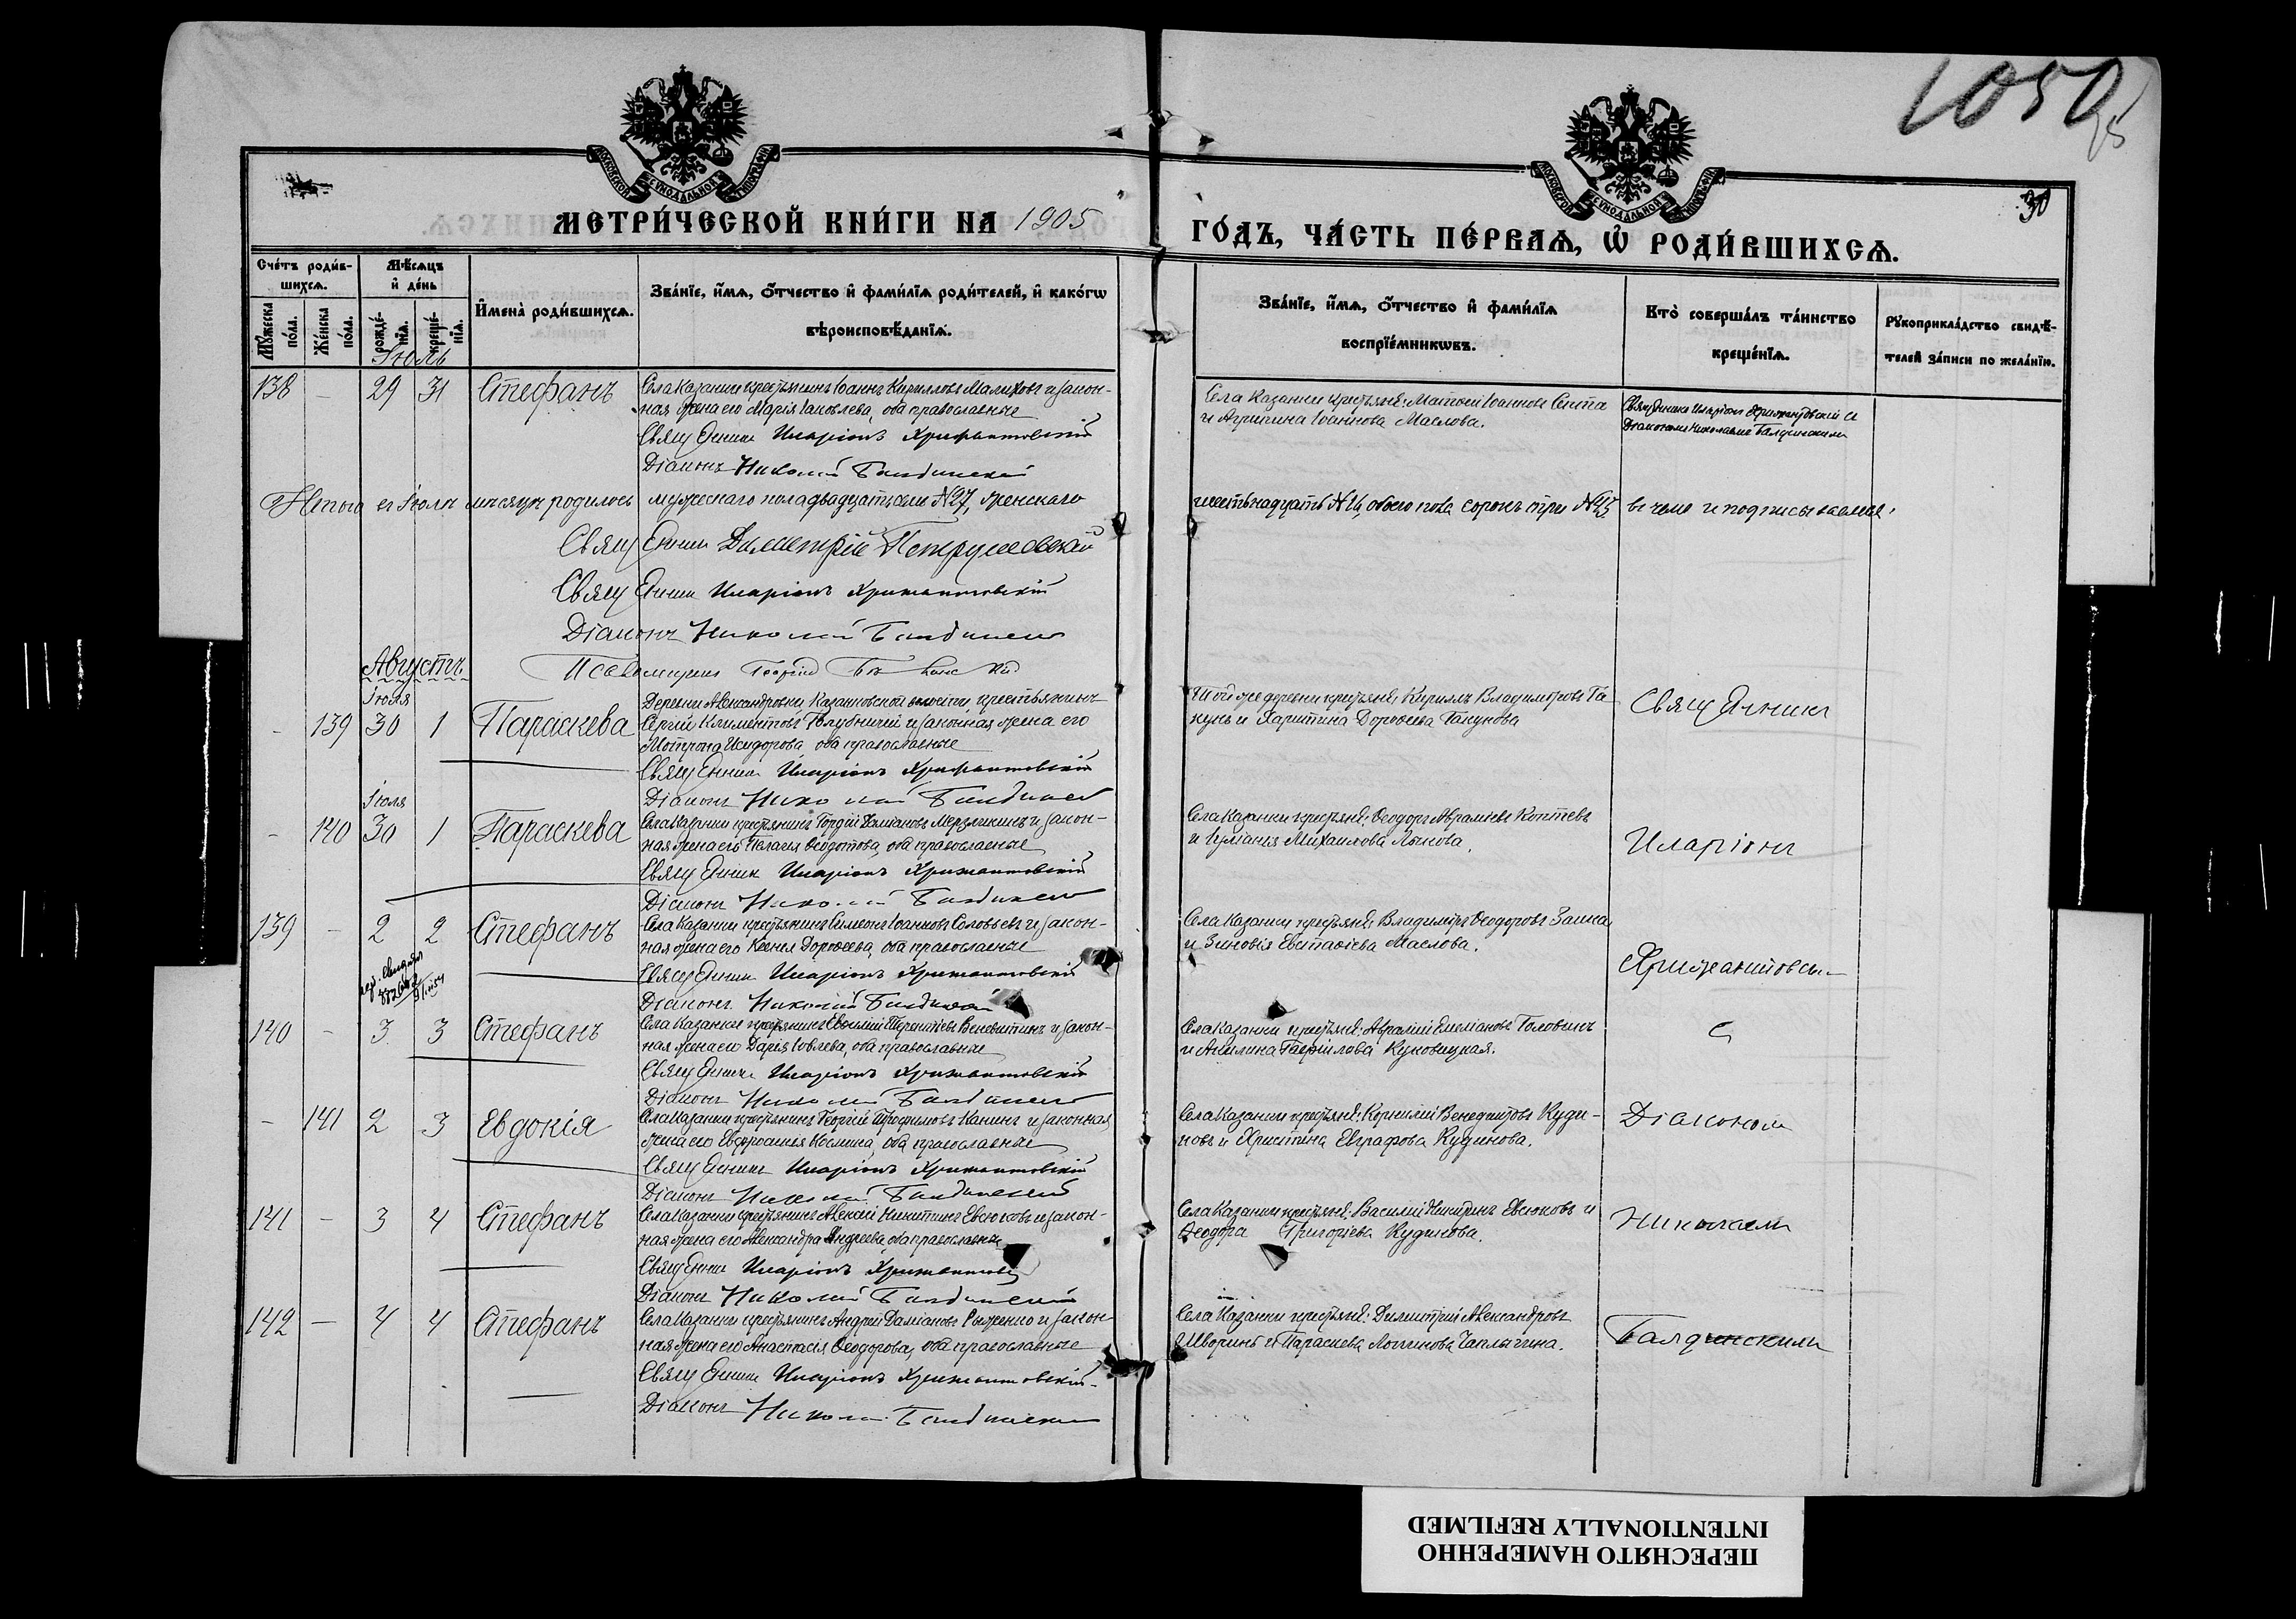 1050
95
30
МОСКОВСКОЙ СѴНОДАЛЬНОЙ ТИПОГРАФІИ
МОСКОВСКОЙ СѴНОДАЛЬНОЙ ТИПОГРАФІИ
МЕТРИ́ЧЕСКОЙ КНИ́ГИ НА 1905
ГО́ДЪ, ЧА́СТЬ ПЕ́РВАѦ, Ѽ РОДИ́ВШИХСѦ.
Сче́тъ роди́в-
шихсѧ.
Мꙋ́жеска по́ла.
Же́нска по́ла.
Мѣ́сѧцъ
и҆ де́нь
рожде́-нїѧ.
креще́-нїѧ.
И҆мена̀ роди́вшихсѧ.
Зва́нїе, и҆́мѧ, ѻ҆́тчество и҆ фами́лїѧ роди́телей, и҆ како́гѡ
вѣроисповѣ́данїѧ.
Зва́нїе, и҆́мѧ, ѻ҆́тчество и҆ фами́лїѧ
воспрїе́мникѡвъ.
Кто̀ соверша́лъ та́инство
креще́нїѧ.
Рꙋкоприкла́дство свидѣ́-
телей за́писи по жела́нїю.
Іюль
138 - 29 31 Стефанъ
Села Казанки крестьянинъ Іоаннъ Кирилловъ Малиховъ и закон-
ная жена его Марія Іаковлева, оба православные
Священникъ Иларіонъ Крижантовскій
Діаконъ Николай Балдинскій
Села Казанки крестьяне: Матвей Іоанновъ Сипта
и Агрипина Іоаннова Маслова.
Священникъ Иларіонъ Крижантовскій съ
Діакономъ Николаемъ Балдинскимъ
Итого въ Іюле месяце родилось мужескаго пола двадцать семь №27, женскаго
шестьнадцать №16, обоего пола сорокъ три №43, въ чемъ и подписываемся:
Священникъ Димитрій Петрушевскій
Священникъ Иларіонъ Крижантовскій
Діаконъ Николай Балдинскій
Псаломщикъ Георгій
Августъ
Іюля
- 139 30 1 Параскева
Деревни Александровки Казанковской волости крестьянинъ
Сергій Климентовъ Голубничій и законная жена его
Мотрона Исидорова, оба православные
Священникъ Иларіонъ Крижантовскій
Діаконъ Николай Балдинскій
Той же деревни крестьяне: Кириллъ Владиміровъ Га-
кунъ и Харитина Дорофеева Гакунова
Священникъ
Іюля
- 140 30 1 Параскева
Села Казанки крестьянинъ Гордій Даміановъ Мерзликинъ и закон-
ная жена его Пелагія Ѳеодотова, оба православные
Священникъ Иларіонъ Крижантовскій
Діаконъ Николай Балдинскій
Села Казанки крестьяне: Ѳеодоръ Авраміевъ Коптевъ
и Іуліанія Михаилова Лыкова.
Иларіонъ
139 - 2 2 Стефанъ
Села Казанки крестьянинъ Симеонъ Іоанновъ Соловьевъ и закон-
ная жена его Ксенія Дорофеева, оба православные
Священникъ Иларіонъ Крижантовскій
Діаконъ Николай Балдинскій
Села Казанки крестьяне: Владиміръ Ѳеодоровъ Заика
и Зиновія Евстафіева Маслова.
Крижантовскій
140 - 3 3 Стефанъ
Села Казанки крестьянинъ Евфимій Терентіевъ Веневитинъ и закон-
ная жена его Дарія Іовлева, оба православные
Священникъ Иларіонъ Крижантовскій
Діаконъ Николай Балдинскій
Села Казанки крестьяне: Авраамій Емеліановъ Головинъ
и Акилина Гавріилова Куковицкая.
съ
- 141 2 3 Евдокія
Села Казанки крестьянинъ Георгій Трофимовъ Канинъ и законная
жена его Евфросинія Космина, оба православные
Священникъ Иларіонъ Крижантовскій
Діаконъ Николай Балдинскій
Села Казанки крестьяне: Корнилій Венедиктовъ Куди-
новъ и Христина Евграфова Кудинова.
Діакономъ
141 - 3 4 Стефанъ
Села Казанки крестьянинъ Алексей Никитинъ Евсюковъ и закон-
ная жена его Александра Андреева, оба православные
Священникъ Иларіонъ Крижантовскій
Діаконъ Николай Балдинскій
Села Казанки крестьяне: Василій Никитинъ Евсюковъ и
Ѳеодора Григоріева Кудинова.
Николаемъ
142 — 4 4 Стефанъ
Села Казанки крестьянинъ Андрей Даміановъ Рыженко и закон-
ная жена его Анастасія Ѳеодорова, оба православные
Священникъ Иларіонъ Крижантовскій
Діаконъ Николай Балдинскій
Села Казанки крестьяне: Димитрій Александровъ
Шворинъ и Параскева Логинова Чаплыгина.
Балдинскимъ
ПЕРЕСНЯТО НАМЕРЕННО
INTENTIONALLY REFILMED